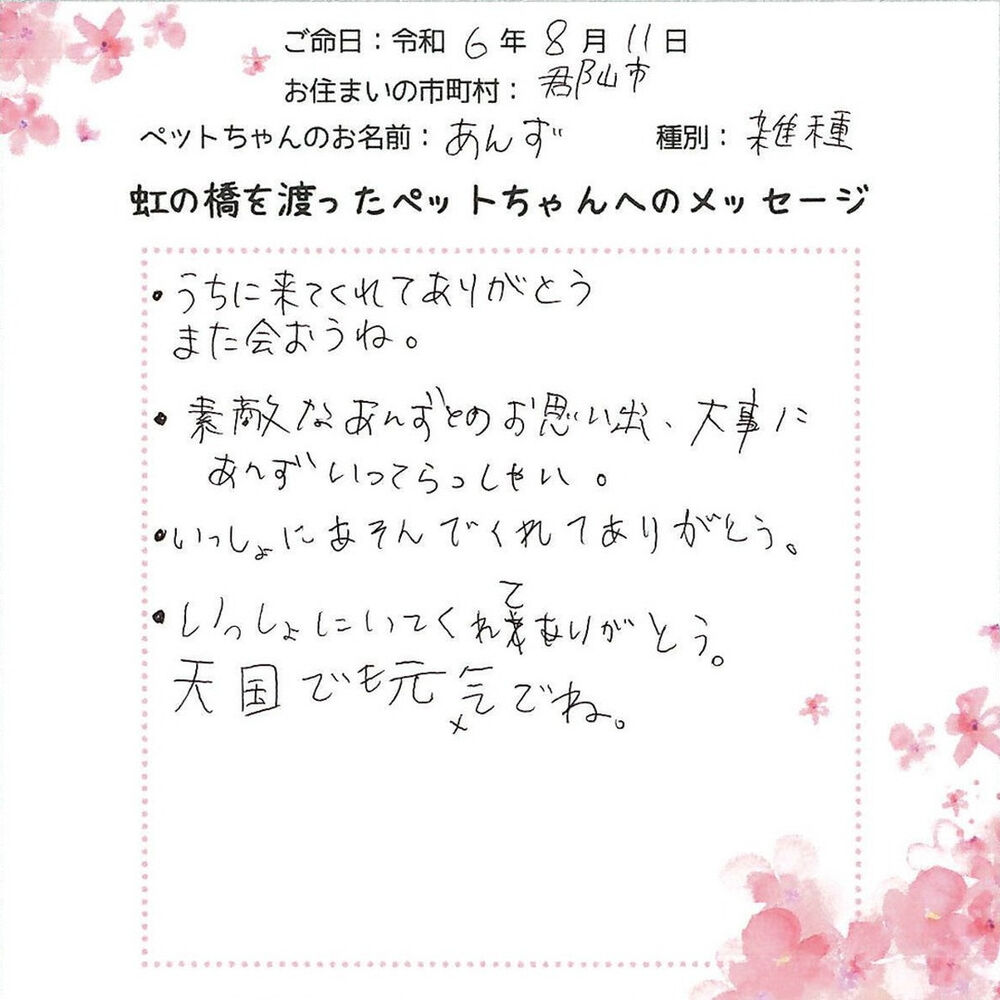 ご命日：令和 6 年 8 月 11 日
お住まいの市町村： 郡山市
ペットちゃんのお名前： あんず 種別： 雑種
虹の橋を渡ったペットちゃんへのメッセージ
・うちに来てくれてありがとう
また会おうね。
・素敵なあんずとのお思い出、大事に
あんずいってらっしゃい。
・いっしょにあそんでくれてありがとう。
・いっしょにいてくれてありがとう。
天国でも元気でね。